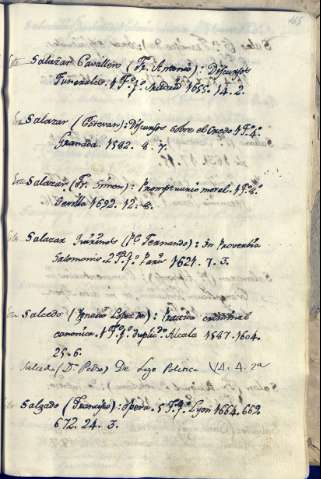 Salazar Cavallero (Fr. Antonio): Discursos
Funerales. 1 T. f.º Madrid 1655. 14. 2.
Salazar (Estevan): Discursos sobre el Credo 1 T. 4.º
Granada. 1582. 8. 7.
Salazar (Fr. Simon): Promptuario moral. 1 T. 4.º
Sevilla 1692. 12. 8.
Salazar (P.e Fernando): In Proverbia
Salomonis 2 T. f.º Paris 1621. 7. 3.
Salcedo (Ignacio Lopez de): Practica criminal
canonica. 1 T. f.º duplic.do Alcala 1587. 1604.
25. 6.
Salcedo (D.n Pedro) De Lege Politica VA. A. 2a
Salgado (Francisco): Opera. 5 T. f.º Lyon 1664. 662.
672. 24. 3.